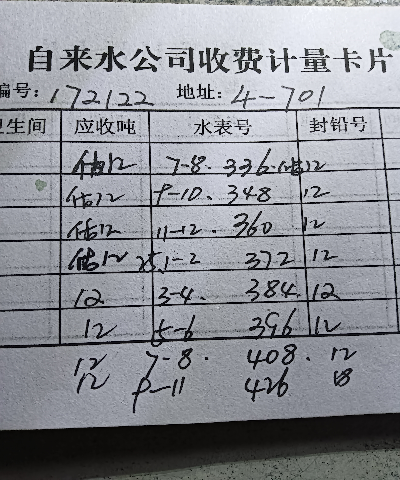 自来水公司收费计量卡片
编号: 172122 地址: 4-701
卫生间 应收吨 水表号 封铅号
估12 7-8. 336.(估)12
估12 9-10. 348 12
估12 11-12. 360 12
估12 25.1-2 372 12
12 3-4. 384. 12
12 5-6 396 12
12 7-8. 408. 12
12 9-11 426 18